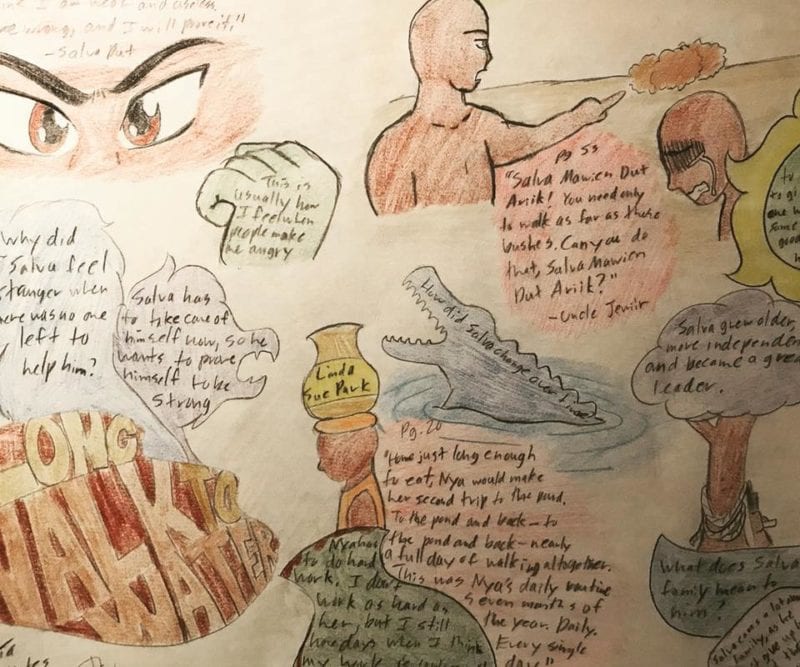 me I am weak and useless.
re wrong, and I will prove it."
-Salva Dut
This is
usually how
I feel when
people make
me angry
pg 53
"Salva Mawien Dut
Ariik! You need only
to walk as far as those
bushes. Can you do
that, Salva Mawien
Dut Ariik?"
-Uncle Jewiir
to
to gi
one w
Same
good
h
Why did
Salva feel
stanger when
here was no one
left to
help him?
Salva has
to take care of
himself now, so he
wants to prove
himself to be
strong
How did Salva change over time?
Salva grew older,
more independen
and became a grea
leader.
Linda
Sue Park
LONG
WALK TO
WATER
Pg. 20
"Home just long enough
to eat, Nya would make
her second trip to the pond.
To the pond and back—to
the pond and back—nearly
a full day of walking altogether.
This was Nya's daily routine
seven months of
the year. Daily.
Every single
day."
Nya has
to do hard
work. I don't
work as hard as
her, but I still
have days when I think
my work is
What does Salva
family mean to
him?
Salva cares a lot
family, as he
give up